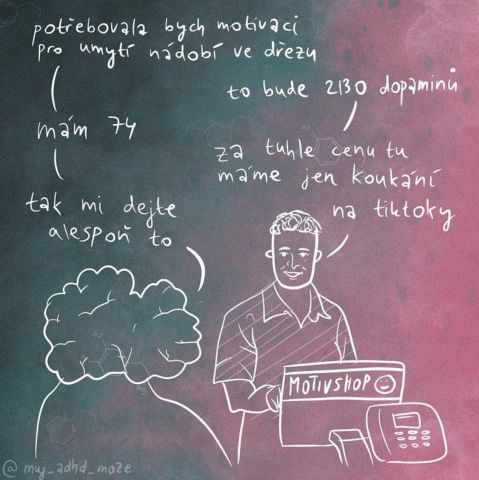 potřebovala bych motivaci
pro umytí nádobí ve dřezu
to bude 2130 dopaminů
mám 74
za tuhle cenu tu
máme jen koukání
na tiktoky
tak mi dejte
alespoň to
MOTIVSHOP
@muj_adhd_moze